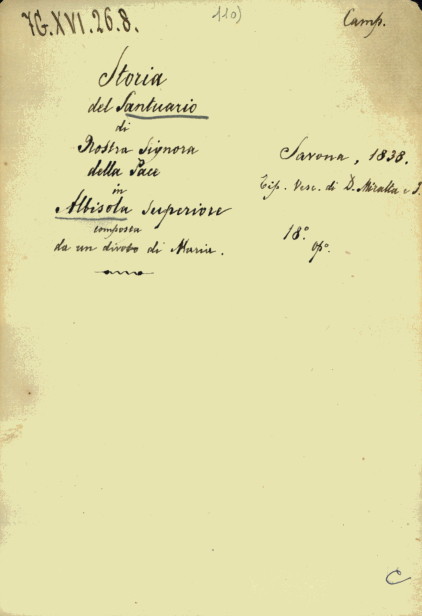 7G.XVI.26.8.
110)
Camp.
Storia
del Santuario
di
Nostra Signora
della Pace
in
Albisola Superiore
composta
da un divoto di Maria.
Savona, 1838.
Tip. Vesc. di D. Miralta e F.
18º
opº.
C